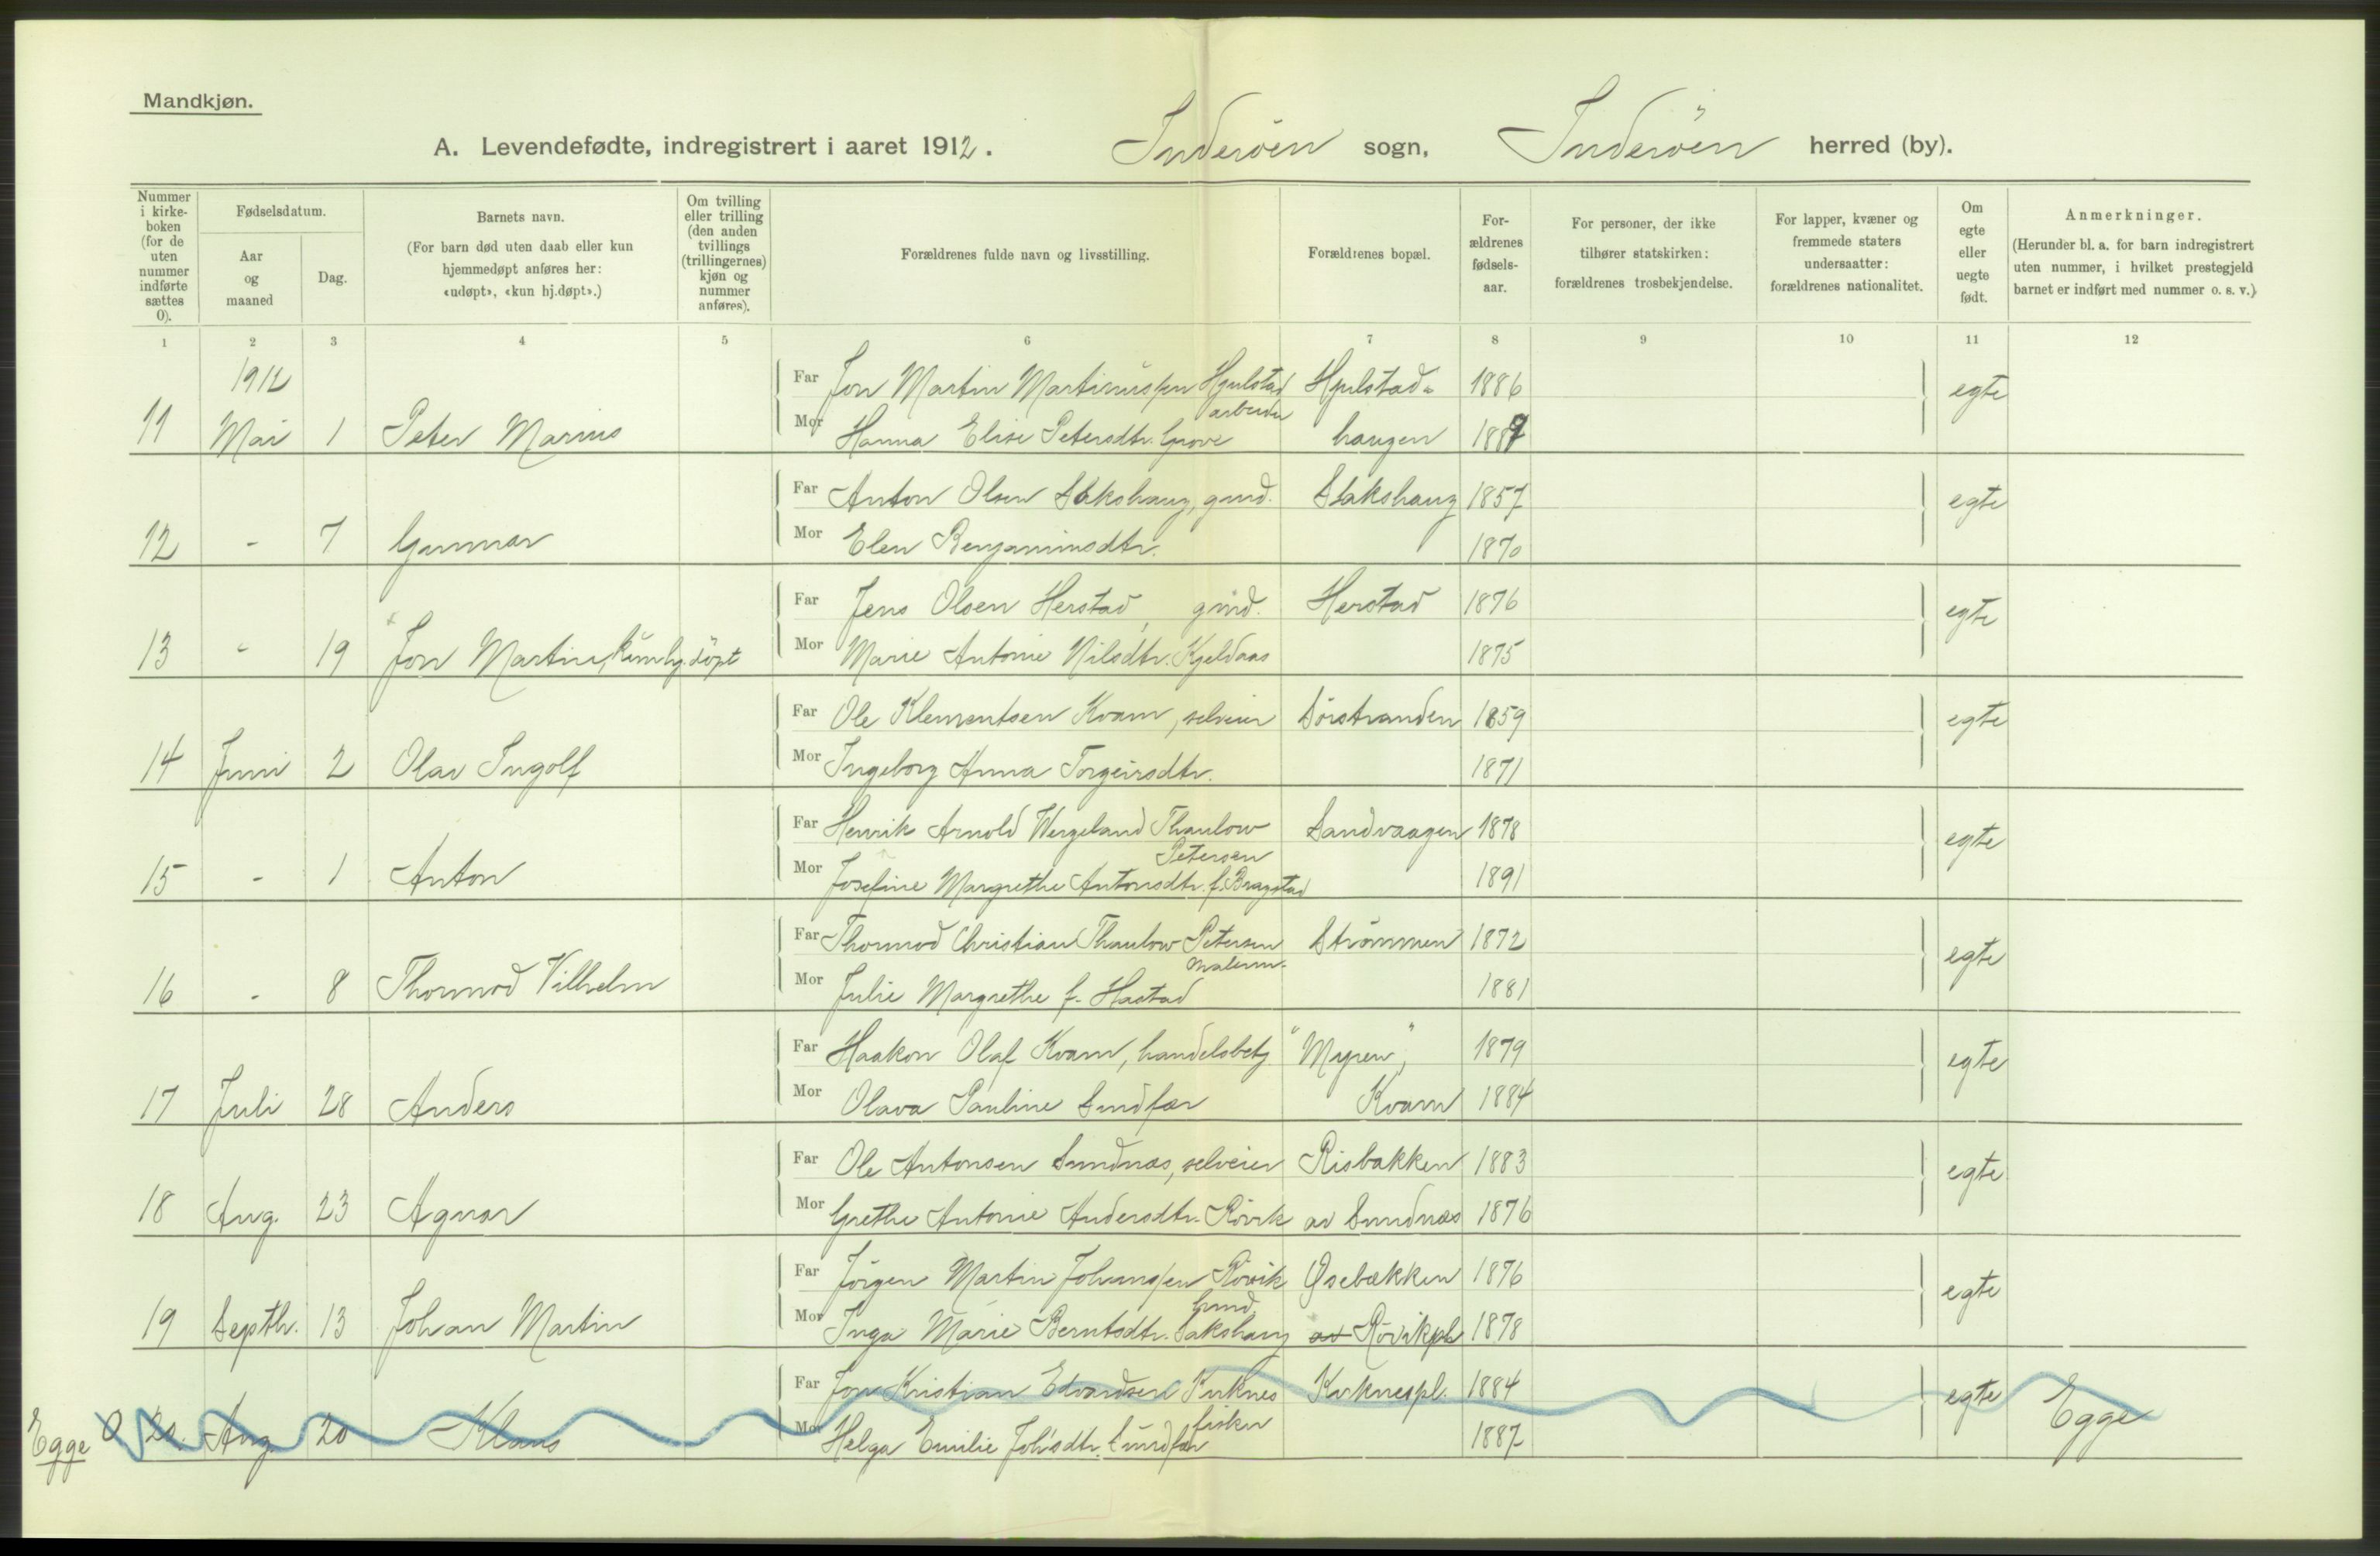 Mandkjøn.
A. Levendefødte, indregistrert i aaret 1912. Inderöen sogn, Inderöen herred (by).
Nummer i kirke-boken (for de uten nummer indførte sættes 0).
Fødselsdatum.
Aar og maaned
Dag.
Barnets navn.
(For barn død uten daab eller kun hjemmedøpt anføres her: «udøpt», «kun hj.døpt».)
Om tvilling eller trilling (den anden tvillings (trillingernes) kjøn og nummer anføres).
Forældrenes fulde navn og livsstilling.
Forældrenes bopæl.
For-ældrenes fødsels-aar.
For personer, der ikke tilhører statskirken: forældrenes trosbekjendelse.
For lapper, kvæner og fremmede staters undersaatter: forældrenes nationalitet.
Om egte eller uegte født.
Anmerkninger.
(Herunder bl. a. for barn indregistrert uten nummer, i hvilket prestegjeld barnet er indført med nummer o. s. v.)
1 2 3 4 5 6 7 8 9 10 11 12
1912
Far Jon Martin Martinussen Hjulstad Hjulstad- 1886 egte
arbeider
11 Mai 1 Peter Marius Mor Hanna Elise Petersdtr. Grove haugen 1889
Far Anton Olsen Sakshaug, gmd. Sakshaug 1857 egte
12 - 7 Gunnar Mor Elen Benjaminsdtr. 1870
Far Jens Olsen Herstad, gmd. Herstad 1876 egte
13 - 19 Jon Martin, kun hj.döpt Mor Marie Antonie Nilsdtr. Kjeldaas 1875
Far Ole Klementsen Kvam, selveier Sörstranden 1859 egte
14 Juni 2 Olav Ingolf Mor Ingeborg Anna Torgeirsdtr. 1871
Far Henrik Arnold Wergeland Thaulow Sandvaagen 1878 egte
Petersen
15 - 1 Anton Mor Josefine Margrethe Antonsdtr. f. Bragstad 1891
Far Thormod Christian Thaulow Petersen Strömmen 1872 egte
16 - 8 Thormod Vilhelm Mor Julie Margrethe f. Hastad 1881
Far Haakon Olaf Kvam, handelsbetj. "Myren", 1879 egte
17 Juli 28 Anders Mor Olava Pauline Sundfær Kvam 1884
Far Ole Antonsen Sundnæs, selveier Risbakken 1883 egte
18 Aug. 23 Agnar Mor Grethe Antonie Andersdtr. Rövik av Sundnæs 1876
Far Jörgen Martin Johanssen Rövik Øsebækken 1876 egte
Gmd.
19 Septbr. 13 Johan Martin Mor Inga Marie Berntsdtr. Sakshaug av Rövikpl 1878
Far Jon Kristian Edvardsen Kirknes Kirknespl. 1884 egte Egge
fisker
Egge 0 20. Aug. 20 Klaus Mor Helga Emilie Joh'sdtr. Sundfær 1887